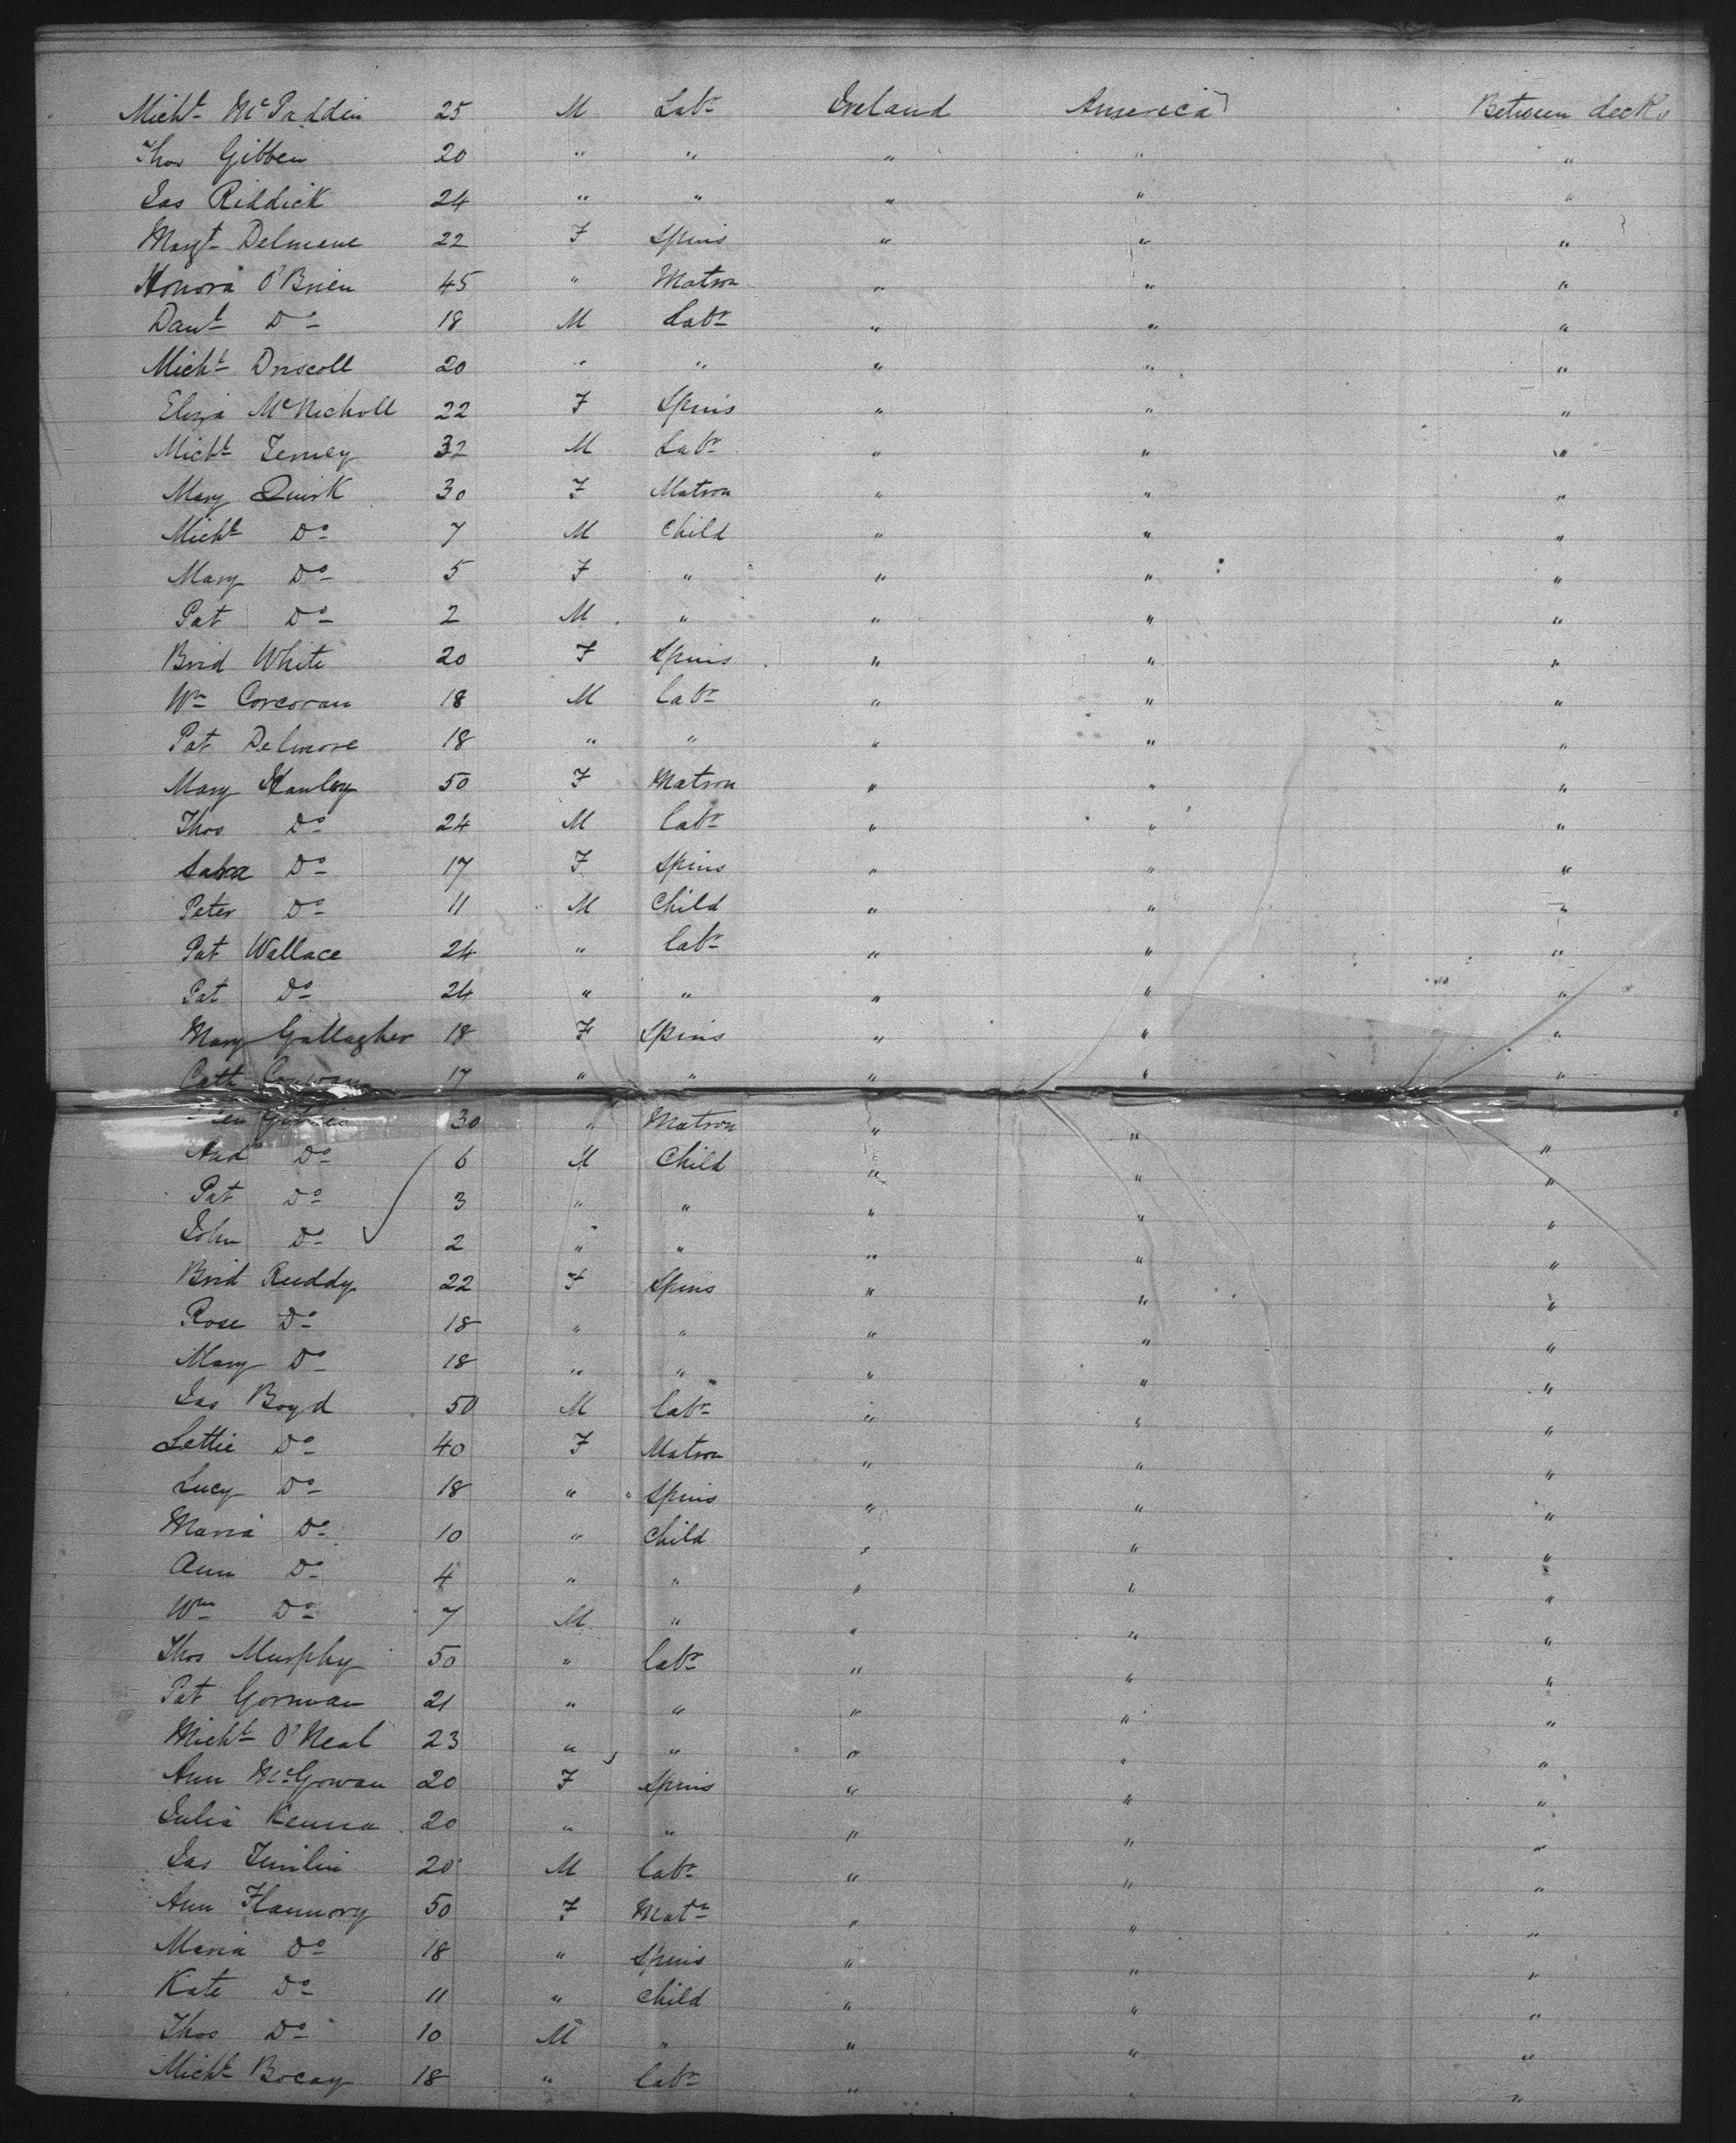 Michl McPaddin 25 M Labr Ireland America Between decks
Thos Gibben 20 " " " " "
Jas Riddick 24 " " " " "
Margt Delmene 22 F Spins " " "
Honora O'Brien 45 " Matron " " "
Danl Do 18 M Labr " " "
Michl Driscoll 20 " " " " "
Eliza McNicholl 22 F Spins " " "
Michl 32 M Labr " " "
Mary Quirk 30 F Matron " " "
Michl Do 7 M Child " " "
Mary Do 5 F " " " "
Pat Do 2 M " " " "
Brid White 20 F Spins " " "
Wm Corcoran 18 M Labr " " "
Pat Delmore 18 " " " " "
Mary Hanley 50 F Matron " " "
Thos Do 24 M Labr " " "
Do 17 F Spins " " "
Peter Do 11 M Child " " "
Pat Wallace 24 " Labr " " "
Pat Do 24 " " " " "
Mary Gallagher 18 F Spins " " "
Cath 17 " " " " "
30 " Matron " " "
And Do 6 M Child " " "
Pat Do 3 " " " " "
John Do 2 " " " " "
Brid Ruddy 22 F Spins " " "
Rose Do 18 " " " " "
Mary Do 18 " " " " "
Jas Boyd 50 M Labr " " "
Lettie Do 40 F Matron " " "
Lucy Do 18 " Spins " " "
Maria Do 10 " Child " " "
Ann Do 4 " " " " "
Wm Do 7 M " " " "
Thos Murphy 50 " Labr " " "
Pat Gorman 21 " " " " "
Michl O'Neal 23 " " " " "
Ann McGowan 20 F Spins " " "
Julia Kenna 20 " " " " "
Jas 20 M Labr " " "
Ann Flannory 50 F Matn " " "
Maria Do 18 " Spins " " "
Kate Do 11 " Child " " "
Thos Do 10 M " " " "
Michl Bocay 18 " Labr " " "